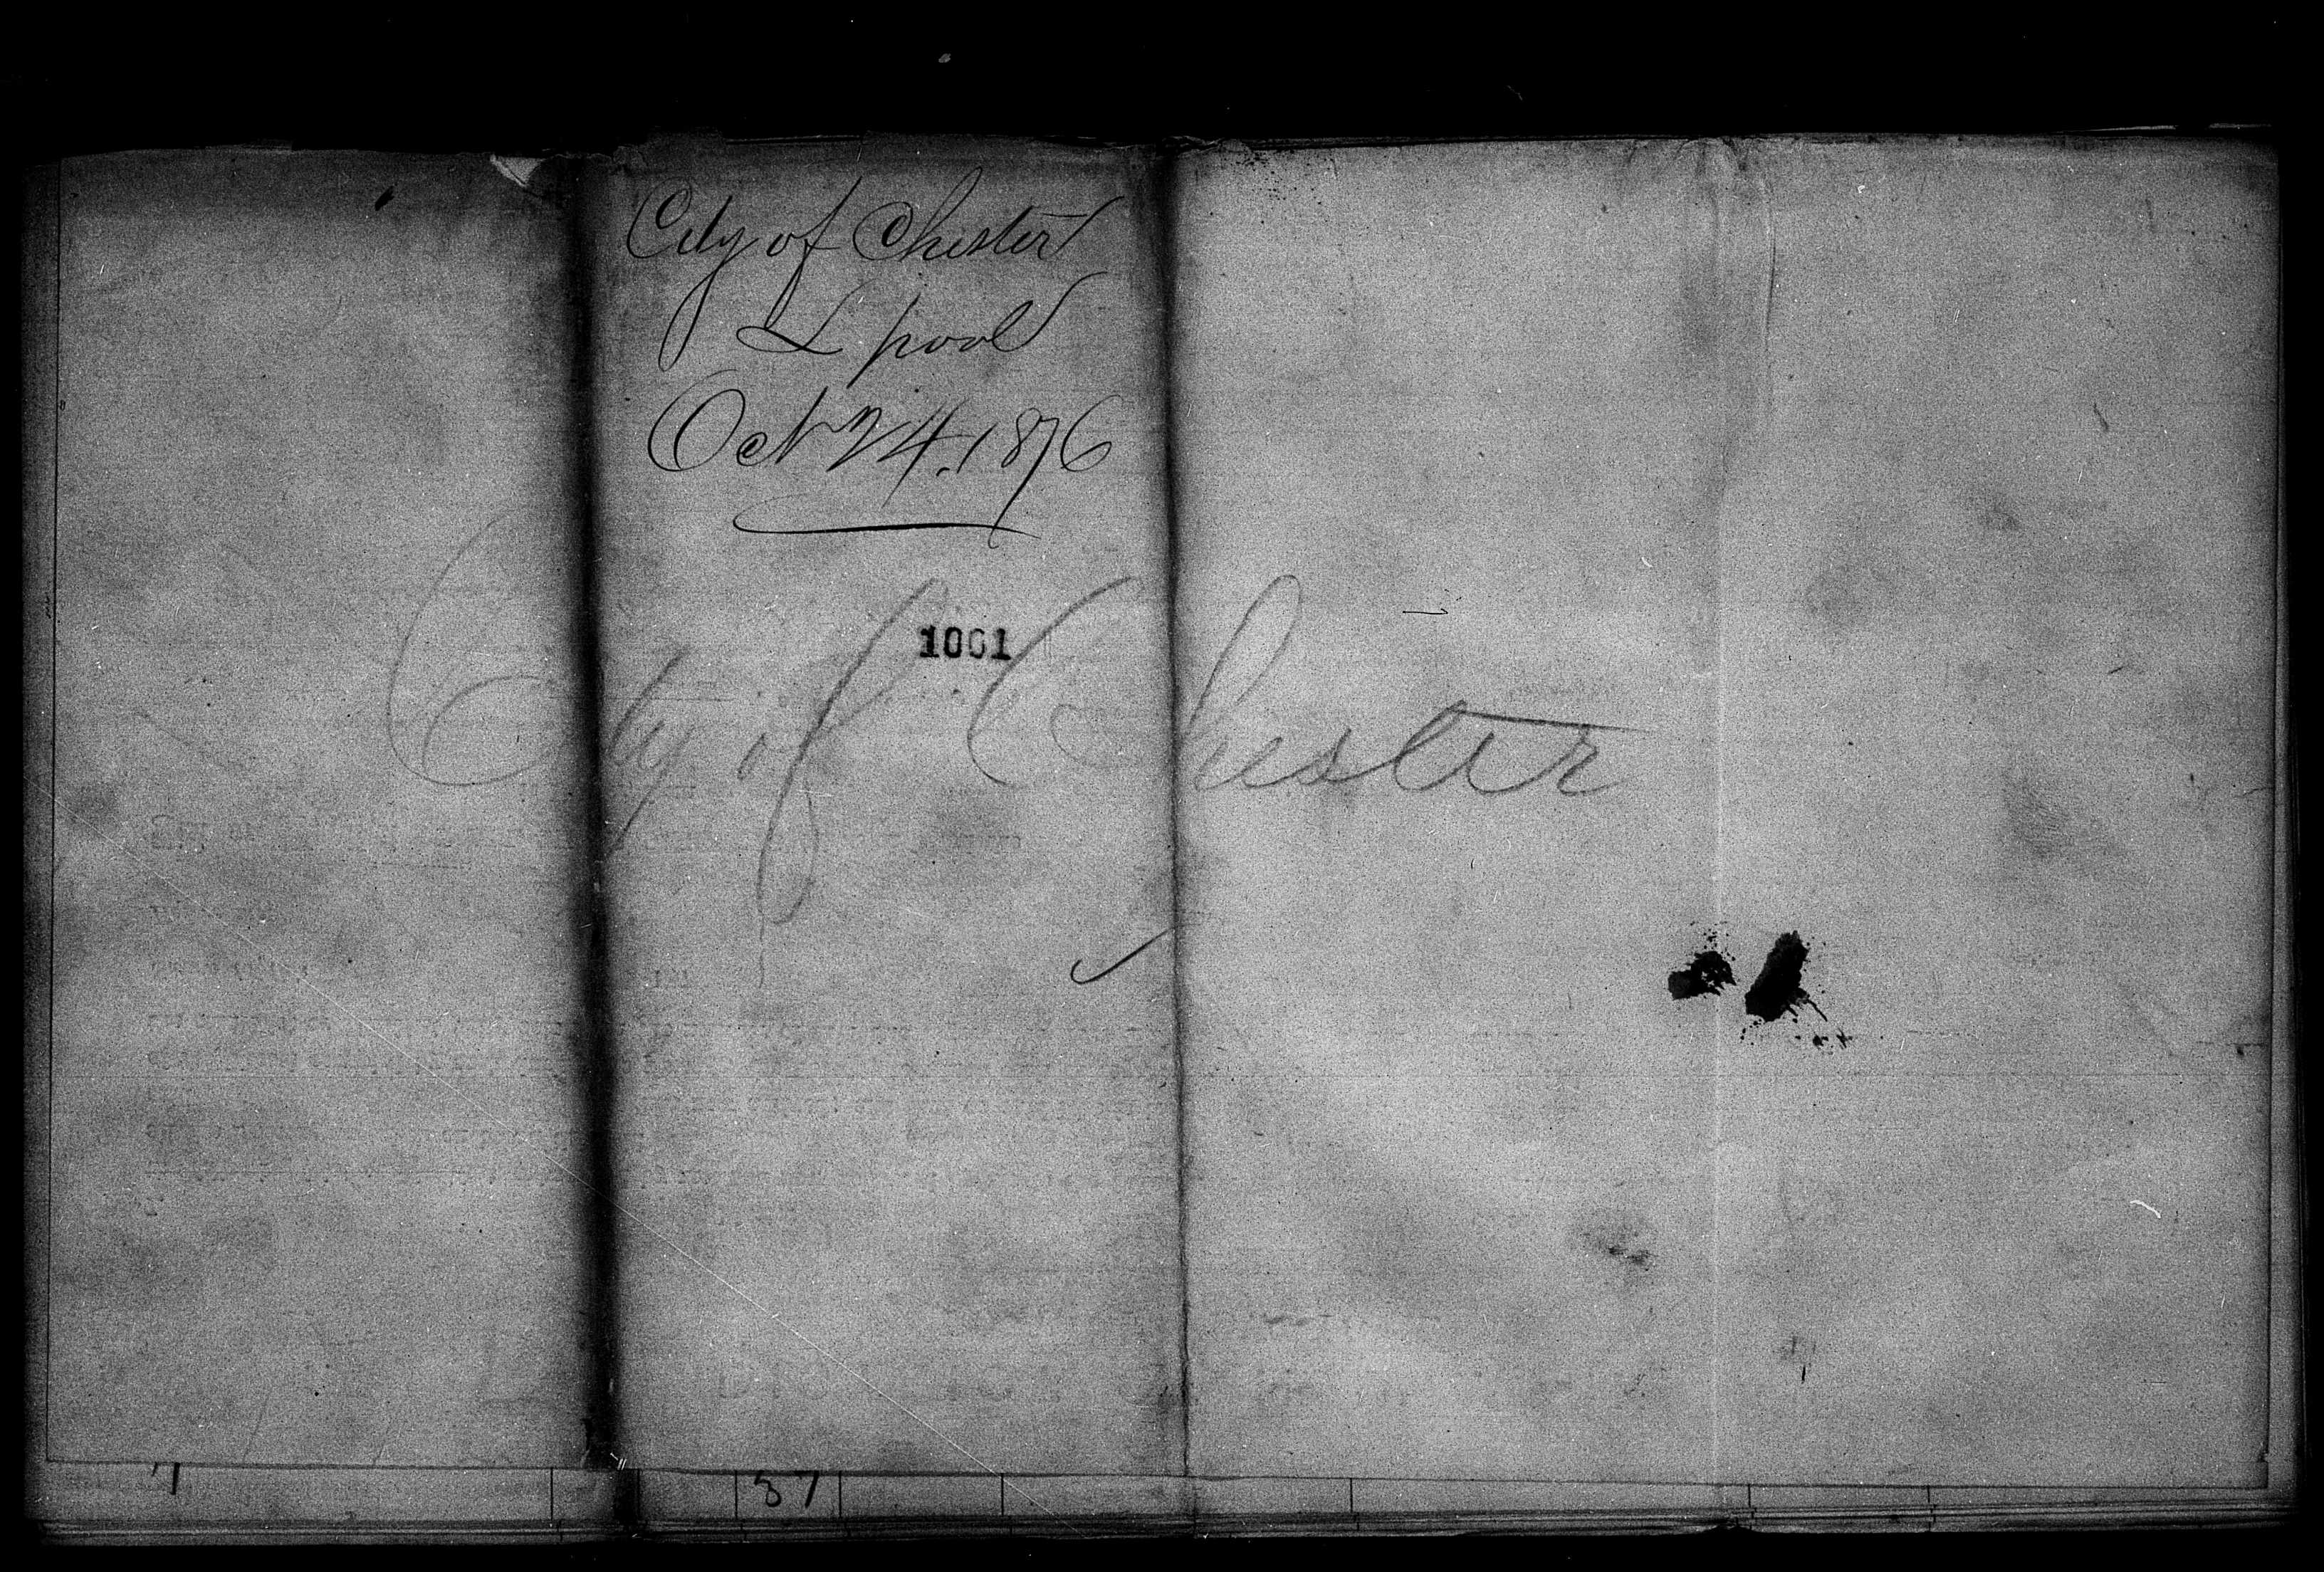 City of Chester
L pool
Oct 24. 1876
1061
City of Chester
57